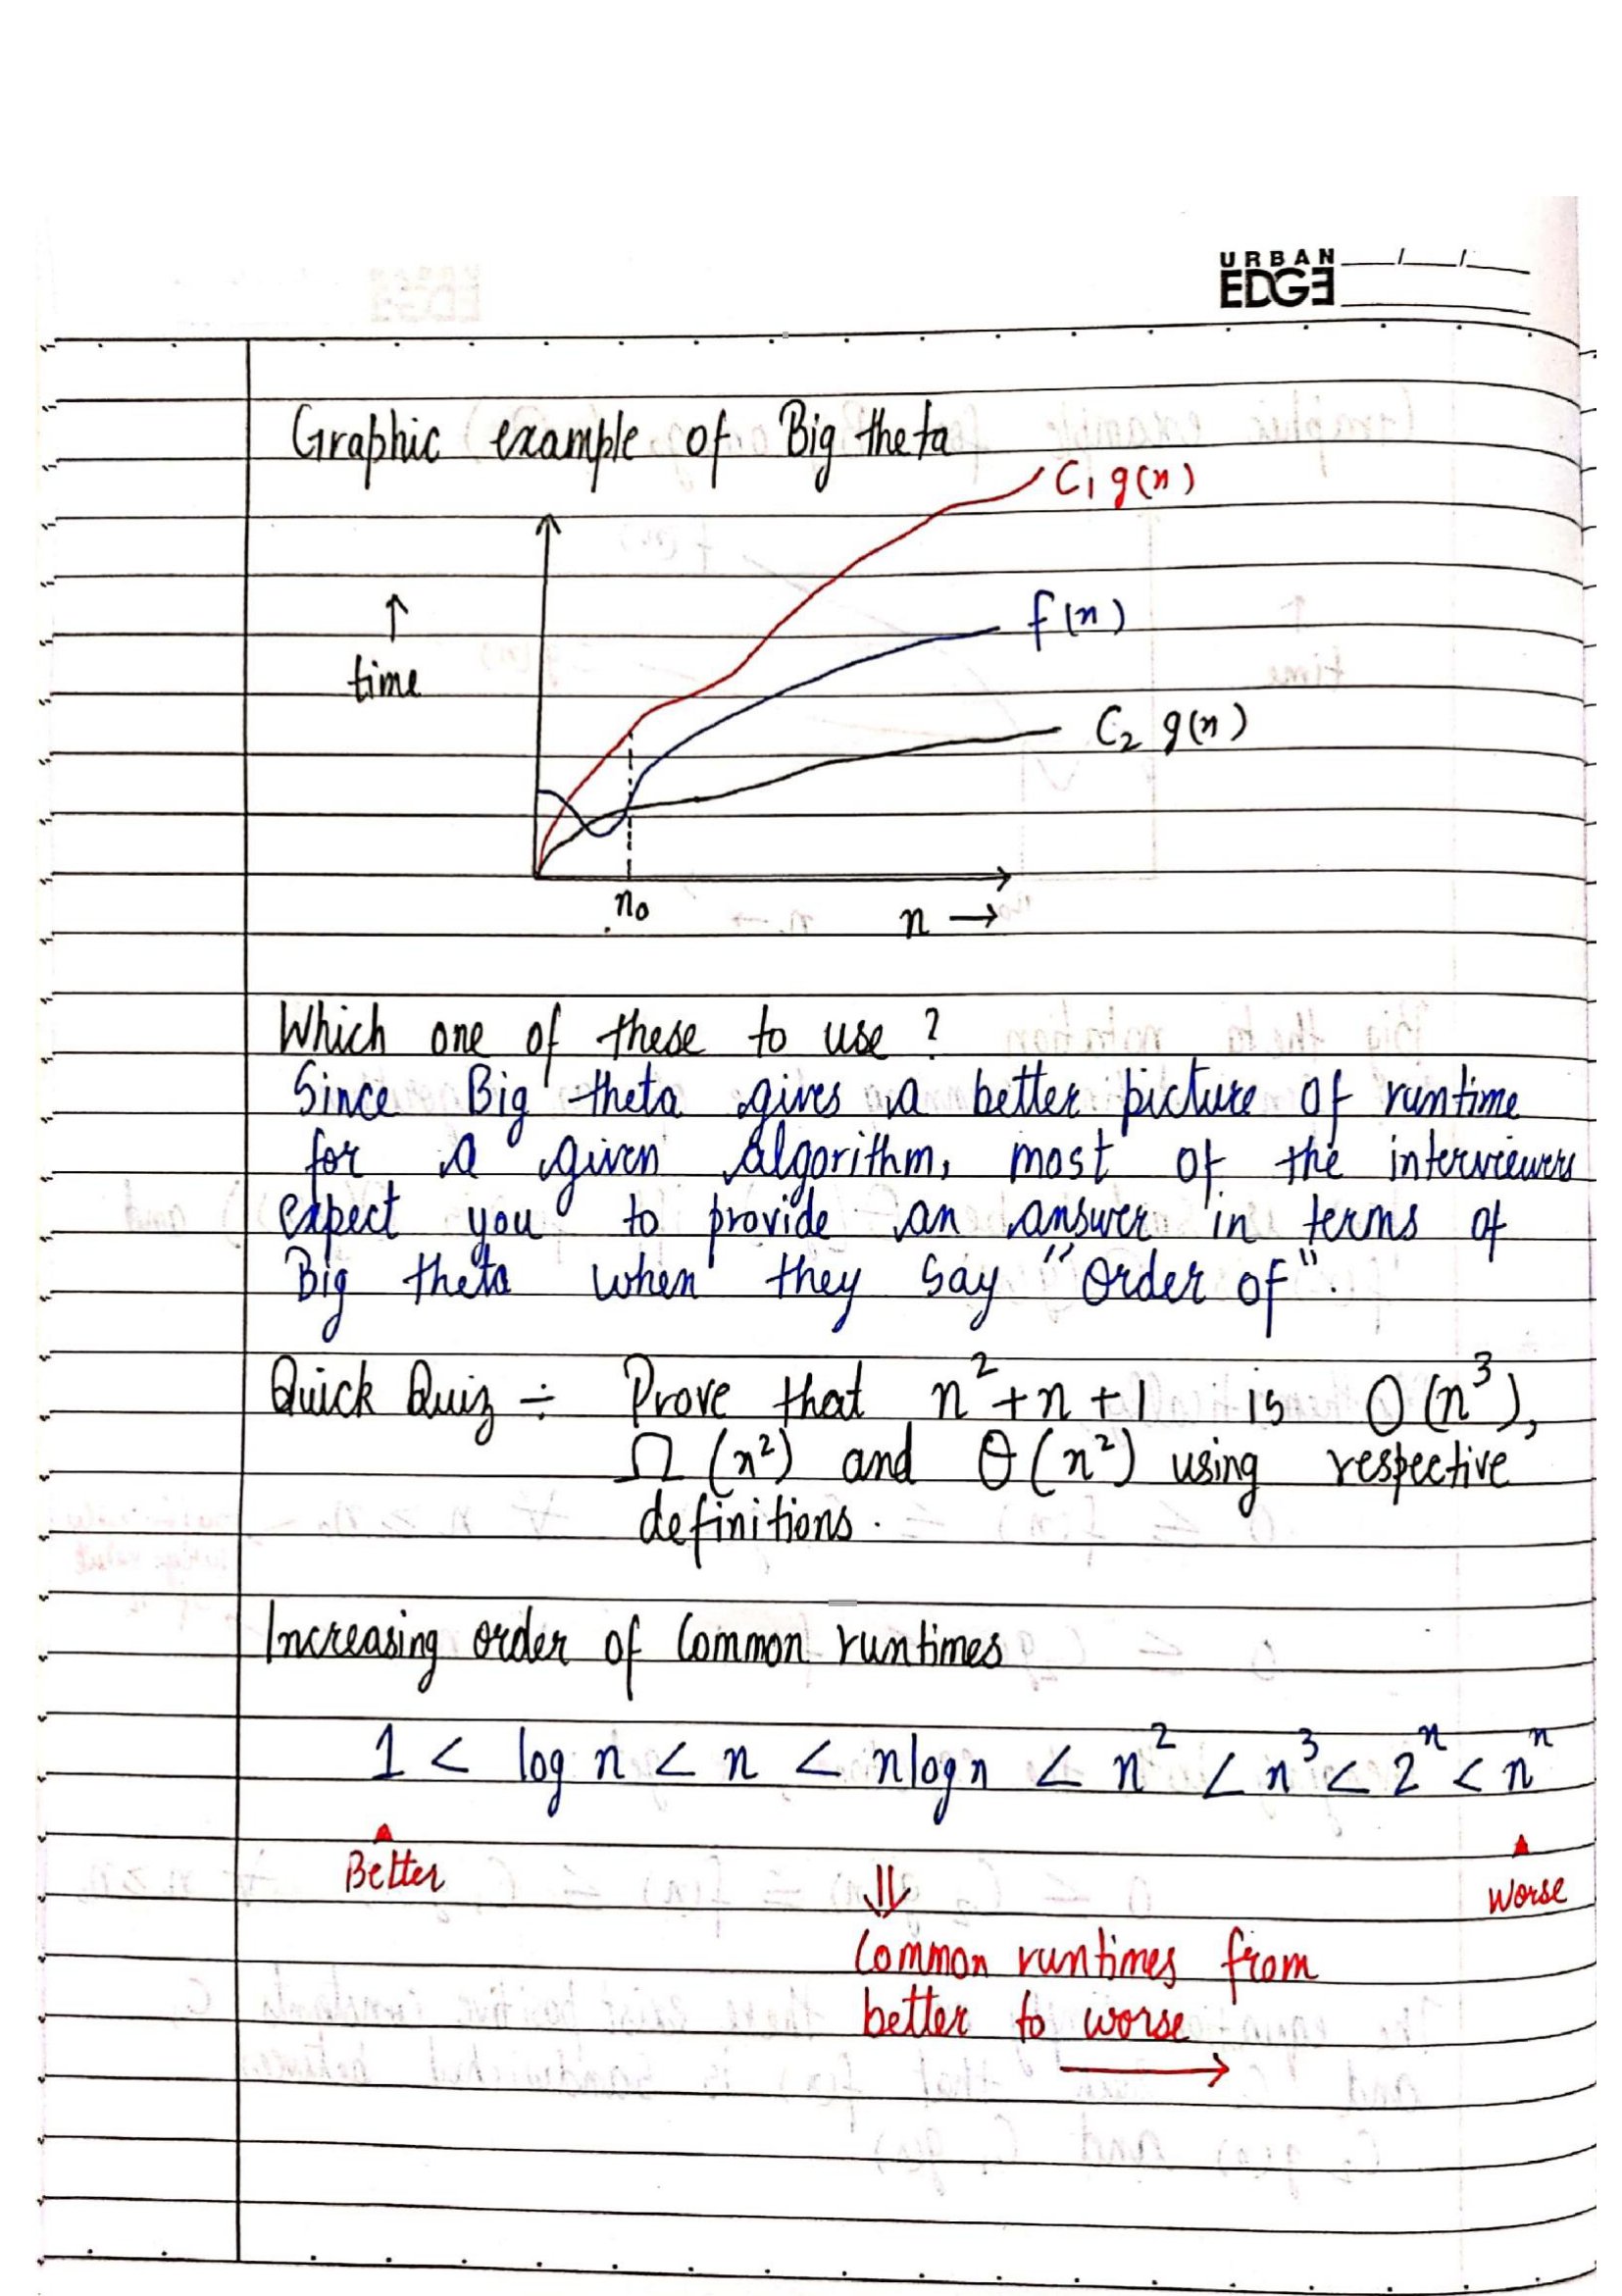 URBAN
EDGE
Graphic example of Big theta
C₁ g(n)
f(n)
↑
time
C₂ g(n)
n₀
n →
Which one of these to use ?
Since Big theta gives a better picture of runtime
for a given algorithm, most of the interviewers
expect you to provide an answer in terms of
Big theta when they say "Order of".
Quick Quiz ÷ Prove that n²+n+1 is O(n³),
Ω(n²) and θ(n²) using respective
definitions.
Increasing order of Common runtimes
1 < log n < n < nlogn < n² < n³ < 2ⁿ < nⁿ
Better
Worse
⇓
Common runtimes from
better to worse
→